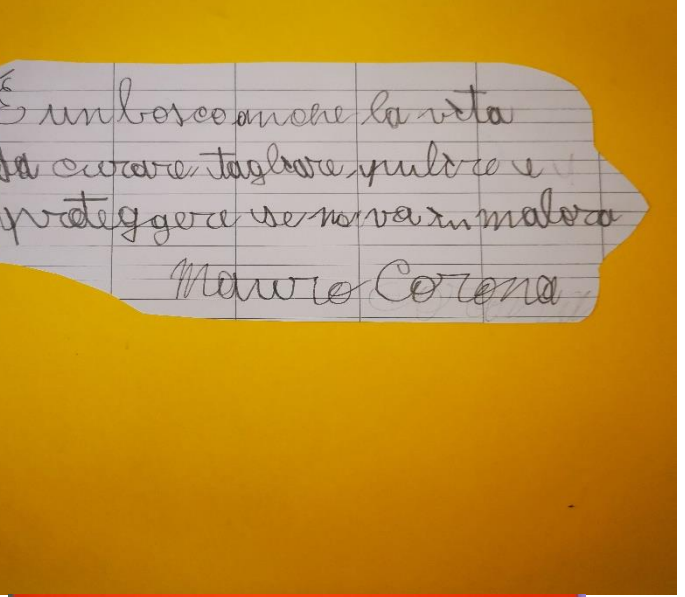 È un bosco anche la vita
da curare, tagliare, pulire e
proteggere se no va in malora
Mauro Corona